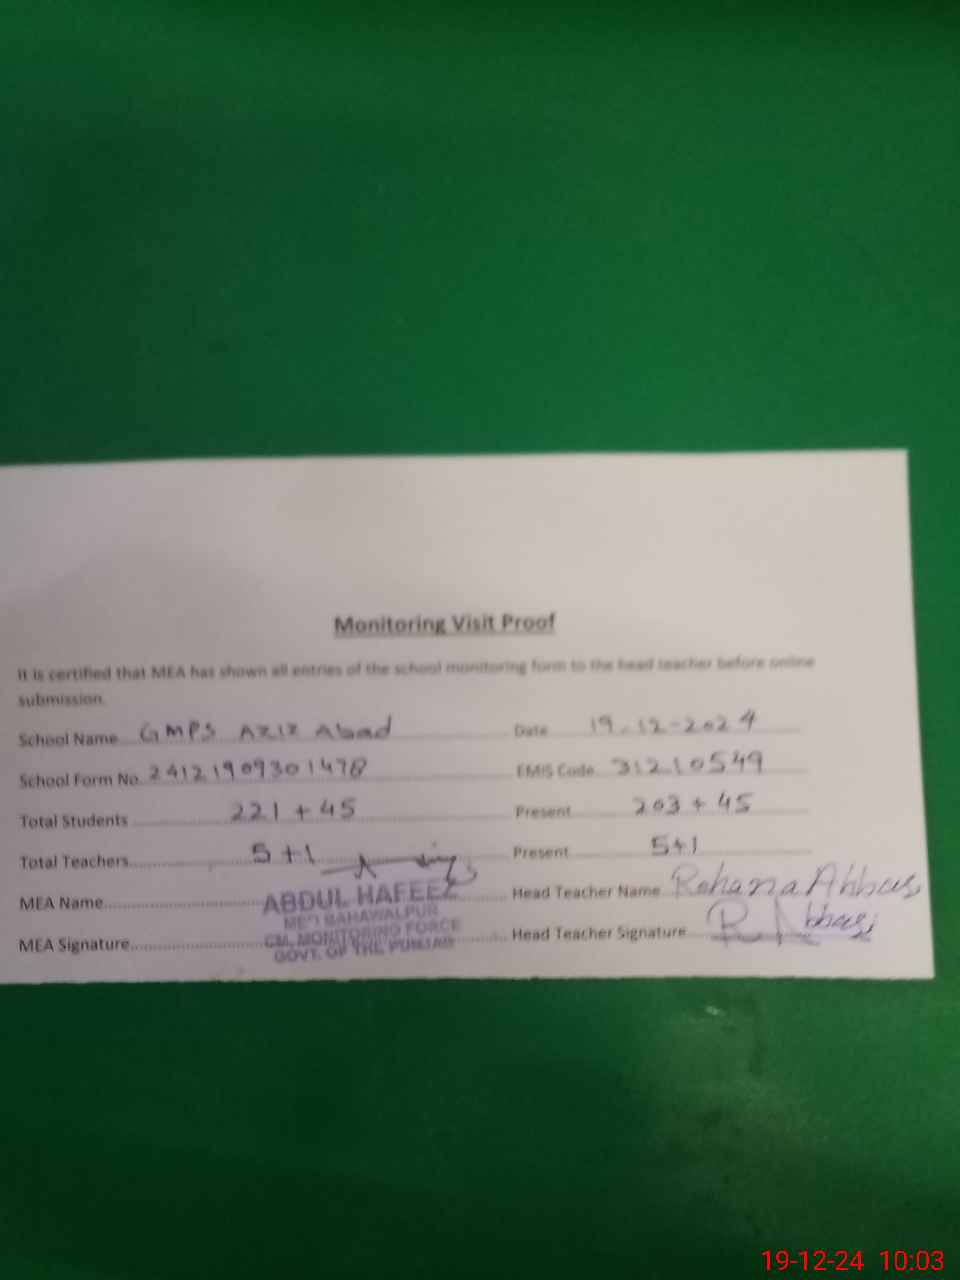 Monitoring Visit Proof
It is certified that MEA has shown all entries of the school monitoring form to the head teacher before online
submission.
School Name GMPS Aziz Abad Date 19-12-2024
School Form No. 24121909301478 EMIS Code 31210549
Total Students 221 + 45 Present 203 + 45
Total Teachers 5+1 Present 5+1
MEA Name ABDUL HAFEEZ Head Teacher Name Rehana Abbas
BAHAWALPUR
MEA Signature CM, MONITORING FORCE Head Teacher Signature R Abbasi
GOVT. OF THE PUNJAB
19-12-24 10:03